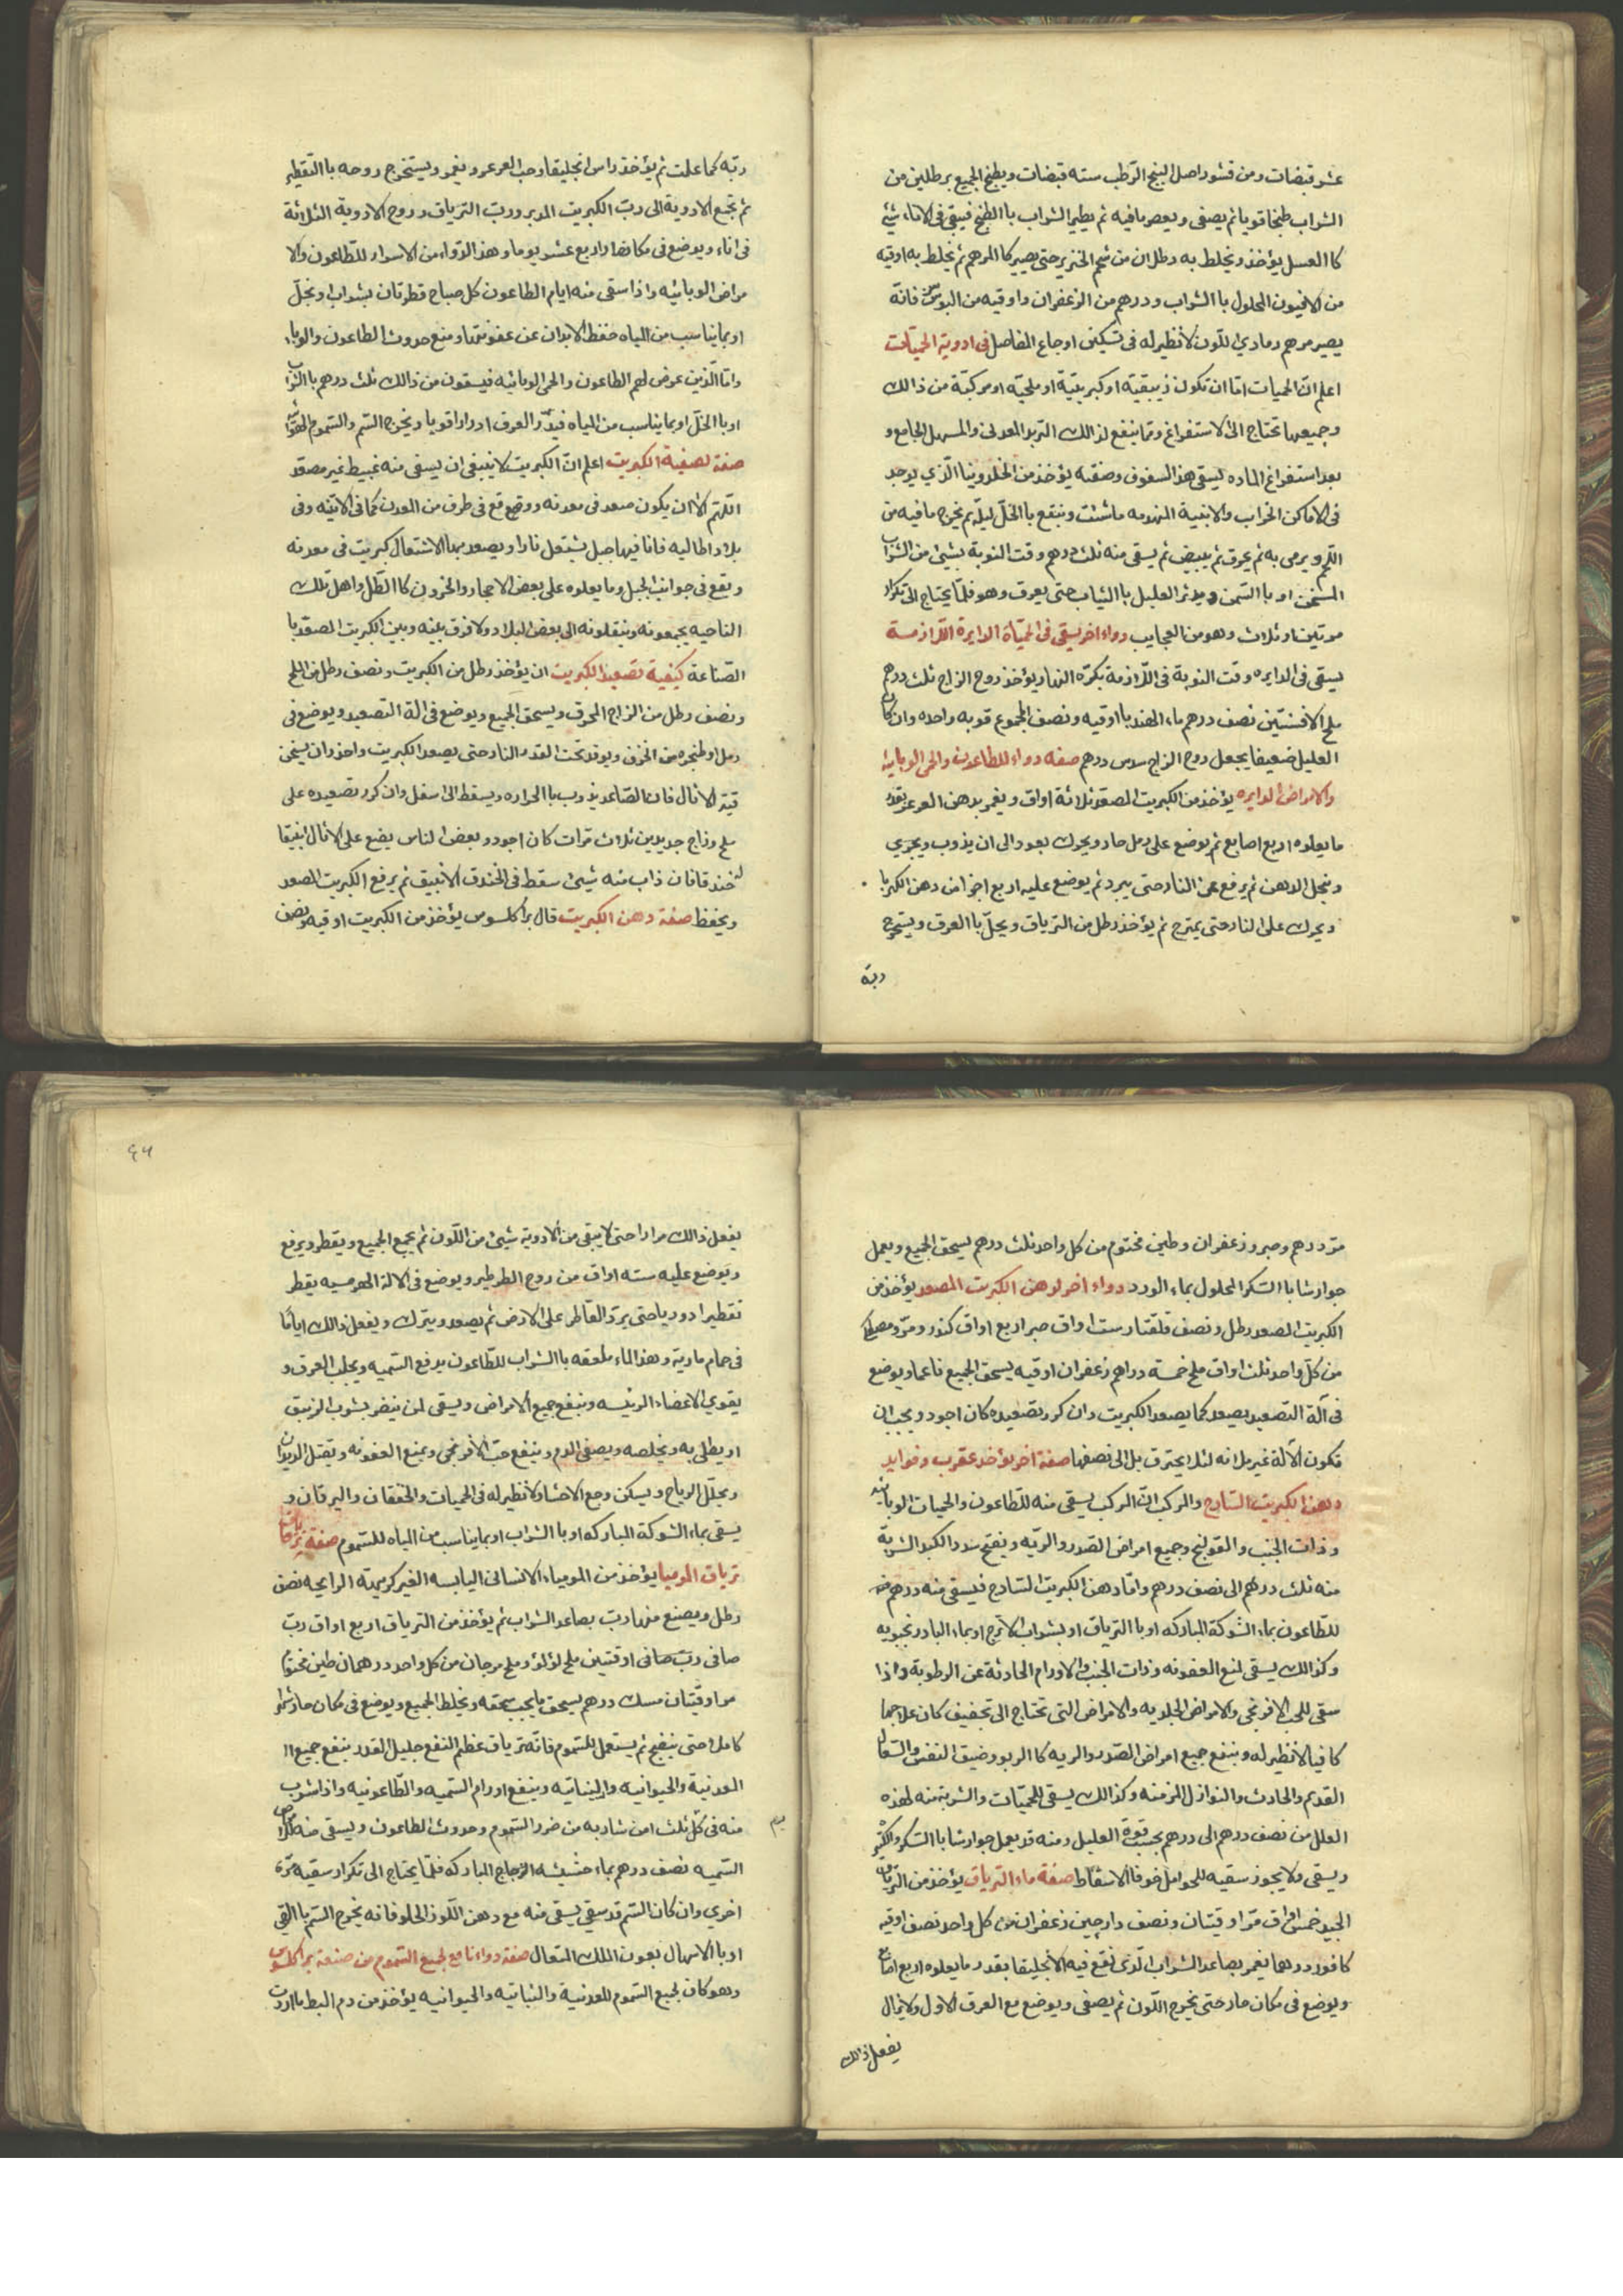 عشر قبضات ومن قشور اصل البنج الرّطب سته قبضات ويطبخ الجميع برطلين من
الشراب طبخا قويا ثم يصفى ويعصر ما فيه ثم يطير الشراب با الطبخ فيبقى فى الاناء شئ
كا العسل يؤخذ ويخلط به رطلان من شحم الخنزير حتى يصير كا المرهم ثم يخلط به اوقيه
من الافيون المحلول با الشراب ودرهم من الزعفران واوقيه من البورق فانّه
يصير مرهم رمادي اللون لا نظير له فى تسكين اوجاع المفاصل فى ادوية الحميّات
اعلم انّ الحميات امّا ان تكون زيبقيّة او كبريتيّة او ملحيّه او مركبّة من ذالك
وجميعها تحتاج الى الاستفراغ وممّا ينفع لذالك التربد المعدنى والمسهل الجامع و
بعد استفراغ الماده يسقى هذا السفوف وصفته يؤخذ من الخلدروينا الّذي يوجد
فى الاماكن الخراب والابنية المنهدمه ما شئت وينقع با الخلّ ليلة ثم يخرج ما فيه من
اللحم ويرمى به ثم يحرق ثم يبيض ثم يسقى منه ثلث درهم وقت النوبة بشيئ من الشراب
المسخن او با السمن ويدثر العليل با الثياب حتى يعرق وهو قلّما يحتاج الى تكرار
مرتين او ثلاث وهو من العجايب دواء اخر يسقى فى الحميّاة الدايرة اللّازمة
يسقى فى الدايره وقت النوبة فى اللّازمة بكرّه النهار يؤخذ روح الزاج ثلث درهم
ملح الافسنتين نصف درهم ماء الهندبا اوقيه ونصف المجموع قوبه واحده وان كان
العليل ضعيفا يجعل روح الزاج سدس درهم صفه دواء للطاعون والحمى الوبايئه
والامراض الدايره يؤخذ من الكبريت المصعّد ثلاثة اواق ويغمر بدهن العرعر بقدر
ما يعلوه اربع اصابع ثم يوضع على رمل حار ويحرك بعود الى ان يذوب ويجري
وينحل الدهن ثم يرفع عن النار حتى يبرد ثم يوضع عليه اربع اجزا من دهن الكهربا
ويحرك على النار حتى يمتزج ثم يؤخذ رطل من الترياق ويحلّ با العرق ويستخرج
ربّه
ربّه كما علمت ثم يؤخذ راسن انجليقا وحب العرعر ويغمر ويستخرج روحه با التّقطير
ثم تجمع الادوية الى ربّ الكبريت المدبر وربّ الترياق وروح الادوية الثلاثة
فى اناء ويوضع فى مكان حار اربع عشر يوما وهذا الدّواء من الاسرار للطّاعون والا
مراض الوبائيه واذا سقى منه ايام الطاعون كل صباح قطرتان بشراب او بخلّ
او بما يناسب من المياه حفظ الابدان عن عفونتها ومنع حدوث الطاعون والوباء
وامّا الّذين عرض لهم الطاعون والحمى الوبائيه فيسقون من ذالك ثلث درهم با الشّراب
او با الخلّ او بما يناسب من المياه فيدرّ العرق ادرارا قويا ويخرج السّم والسّموم
صفة تصفية الكبريت اعلم انّ الكبريت لا ينبغى ان يسقى منه عبيط غير مصعّد
اللّهم الا ان يكون صعد فى معدنه ووقع فى طرف من المعدن كما فى الاتنه وفى
بلاد اطاليه فانّ فيها جبل يشتعل نارا ويصعد بهذا الاشتعال كبريت فى معدنه
ويقع فى جوانب الجبل وما يعلوه على بعض الاحجار والخزون كا الطّل واهل تلك
الناحيه يجمعونه وينقلونه الى بعض البلاد ولا فرق بينه وبين الكبريت المصعّد با
الصّناعة كيفية تصعيد الكبريت ان يؤخذ رطل من الكبريت ونصف رطل من الملح
ونصف رطل من الزاج المحرق ويسحق الجميع ويوضع فى الة التصعيد ويوضع فى
رمل او طنجره من الخزف ويوقد تحت القدر النار حتى يصعد الكبريت واحذر ان يسخن
قبّة الاثال فان الصّاعد يذوب با الحراره ويسقط الى اسفل وان كرر تصعيده على
ملح وزاج جديدين ثلاث مرّات كان اجود وبعض الناس يضع على الاثال انبيقا
له خندقا فان ذاب منه شيئ سقط فى الخندق الانبيق ثم يرفع الكبريت المصعد
ويحفظ صفة دهن الكبريت قال براكلسوس يؤخذ من الكبريت اوقيه ونصف
مرّ درهم وصبر وزعفران وطين مختوم من كل واحد ثلث درهم يسحق الجميع ويعمل
جوارشا با السّكر المحلول بماء الورد دواء اخر لدهن الكبريت المصعد يؤخذ من
الكبريت المصعد رطل ونصف قلقتار ست اواق صبر اربع اواق كندر ومرّ ومصطكى
من كلّ واحد ثلث اواق ملح خمسة دراهم زعفران اوقيه يسحق الجميع ناعما ويوضع
فى آلة التصعيد يصعد كما يصعد الكبريت وان كرر تصعيده كان اجود ويجب ان
تكون الالة غير ملانه لئلا يحترق بل الى نصفها صفة اخر يؤخذ عقرب وفوايد
دهن الكبريت السّادج والمركب انّ المركب يسقى منه للطّاعون والحميات الوبائيه
وذات الجنب والقولنج وجميع امراض الصّدر والريّه ويفتح سدد الكبد الشربة
منه ثلث درهم الى نصف درهم وامّا دهن الكبريت السّادج فيسقى منه درهم
للطّاعون بماء الشوكة المباركه او با الترياق او بشراب الاترج او بماء البادرنجبويه
وكذالك يسقى لمنع العفونه وذات الجنب والاورام الحادثة عن الرطوبة واذا
سقى للحب الافرنجى والامراض الجلديه والامراض التى تحتاج الى تجفيف كان علاجها
كافيا لا نظير له وينفع جميع امراض الصّدر والريه كا الربو وضيق النفس والسّعال
القديم والحادث والنوازل المزمنه وكذالك يسقى للحميّات والشربة منه لهذه
العلل من نصف درهم الى درهم بحسب قوة العليل ومنه قد يعمل جوارشا با السّكر والكثيرا
ويسقى ولا يجوز سقيه للحوامل خوفا الاسقاط صفة ماء الترياق يؤخذ من الترياق
الجيد خمس اواق مرّ اوقيتان ونصف دارجين زعفران من كل واحد نصف اوقيه
كافور درهما يغمر بصاعد الشراب الّذى نقع فيه الانجليقا بقدر ما يعلوه اربع اصابع
ويوضع فى مكان حار حتى يخرج اللّون ثم يصفى ويوضع مع العرق الاول ولا يزال
يفعل ذالك
٤٦
يفعل ذالك مرارا حتى لا يبقى من الادوية شيئ من اللّون ثم يجمع الجميع ويقطر ويرفع
ويوضع عليه سته اواق من روح الطرطير ويوضع فى الالة الهرمسيه يقطر
تقطيرا دوريا حتى يردّ القاطر على الارض ثم يصعد ويترك ويفعل ذالك ايّامًا
فى حمام ماريّة وهذا الماء ملعقه با الشراب للطّاعون يدفع السّميه ويجلب العرق و
يقوي الاعضاء الرئيسه وينفع جميع الامراض ويسقى لمن يتضرر بشرب الزيبق
او يطلى به ويخلصه ويصفى الدم وينفع حبّ الافرنجى ويمنع العفونه ويقتل الديدان
ويحلّل الرياح ويسكن وجع الاحشا ولا نظير له فى الحميات والخفقان واليرقان و
يسقى بماء الشوكة المباركه او با الشراب او بما يناسب من المياه للسّموم صفة ترياقات
ترياق الموميا يؤخذ من المومياء الانسانى اليابسه الغير كريهة الرايحه نصف
رطل ويصنع منها ربّ بصاعد الشراب ثم يؤخذ من الترياق اربع اواق ربّ
صافى ربّ صافى اوقتين ملح لؤلؤ وملح مرجان من كل واحد درهمان طين مختوم
مر اوقيّتان مسك درهم يسحق ما يجب سحقه ويخلط الجميع ويوضع فى مكان حار شهرا
كاملا حتى ينضج ثم يستعمل للسّموم فانّه ترياق عظم النفع جليل القدر ينفع جميع الـ
المعدنية والحيوانيه والنباتيه وينفع اورام السّميه والطّاعونيه واذا شرب
منه فى كلّ ثلث امن شاربه من ضرر السّموم وحدوث الطاعون ويسقى منه للامراض
السّميه نصف درهم بماء حشيشه الزجاج المباركه فلمّا يحتاج الى تكرار سقيه مرّة
اخري وان كان السّم قد سقي يسقى منه مع دهن اللّوز الحلو فانه يخرج السّم با القي
او با الاسهال بعون الملك المتعال صفة دواء نافع لجميع السّموم من صنعة براكلسوس
وهو كان لجميع السّموم المعدنية والنباتيه والحيوانيه يؤخذ من دم البط